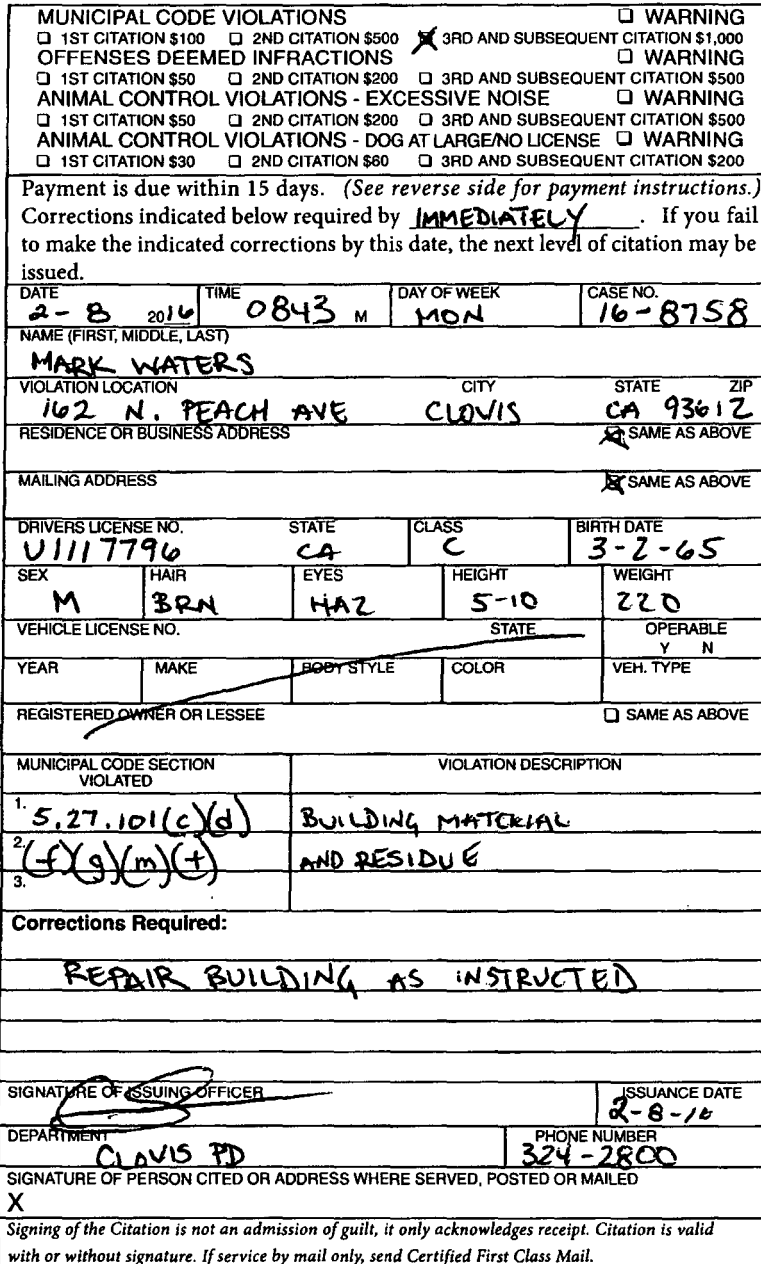 MUNICIPAL CODE VIOLATIONS ☐ WARNING
☐ 1ST CITATION $100 ☐ 2ND CITATION $500 ☒ 3RD AND SUBSEQUENT CITATION $1,000
OFFENSES DEEMED INFRACTIONS ☐ WARNING
☐ 1ST CITATION $50 ☐ 2ND CITATION $200 ☐ 3RD AND SUBSEQUENT CITATION $500
ANIMAL CONTROL VIOLATIONS - EXCESSIVE NOISE ☐ WARNING
☐ 1ST CITATION $50 ☐ 2ND CITATION $200 ☐ 3RD AND SUBSEQUENT CITATION $500
ANIMAL CONTROL VIOLATIONS - DOG AT LARGE/NO LICENSE ☐ WARNING
☐ 1ST CITATION $30 ☐ 2ND CITATION $60 ☐ 3RD AND SUBSEQUENT CITATION $200
Payment is due within 15 days. (See reverse side for payment instructions.)
Corrections indicated below required by IMMEDIATELY. If you fail
to make the indicated corrections by this date, the next level of citation may be
issued.
DATE TIME DAY OF WEEK CASE NO.
2-8 2016 0843 M MON 16-8758
NAME (FIRST, MIDDLE, LAST)
MARK WATERS
VIOLATION LOCATION CITY STATE ZIP
162 N. PEACH AVE CLOVIS CA 93612
RESIDENCE OR BUSINESS ADDRESS ☒ SAME AS ABOVE
MAILING ADDRESS ☒ SAME AS ABOVE
DRIVERS LICENSE NO. STATE CLASS BIRTH DATE
U1117796 CA C 3-2-65
SEX HAIR EYES HEIGHT WEIGHT
M BRN HAZ 5-10 220
VEHICLE LICENSE NO. STATE OPERABLE
Y N
YEAR MAKE BODY STYLE COLOR VEH. TYPE
REGISTERED OWNER OR LESSEE ☐ SAME AS ABOVE
MUNICIPAL CODE SECTION VIOLATION DESCRIPTION
VIOLATED
1. 5.27.101(c)(d) BUILDING MATERIAL
2. (f)(g)(m)(t) AND RESIDUE
3.
Corrections Required:
REPAIR BUILDING AS INSTRUCTED
SIGNATURE OF ISSUING OFFICER ISSUANCE DATE
2-8-16
DEPARTMENT PHONE NUMBER
CLOVIS PD 324-2800
SIGNATURE OF PERSON CITED OR ADDRESS WHERE SERVED, POSTED OR MAILED
X
Signing of the Citation is not an admission of guilt, it only acknowledges receipt. Citation is valid
with or without signature. If service by mail only, send Certified First Class Mail.